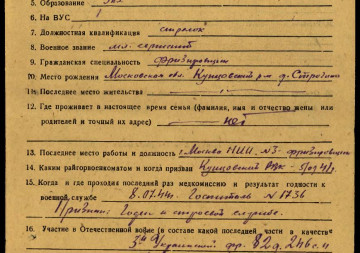 5. Образование
6. На ВУС 1
7. Должностная квалификация стрелок
8. Военное звание мл. сержант
9. Гражданская специальность фрезировщик
10. Место рождения Московская обл. Кунцовский р-н д. Строгино
11. Последнее место жительства
12. Где проживает в настоящее время семья (фамилия, имя и отчество жены или
родителей и точный их адрес) нет
13. Последнее место работы и должность г. Москва НИИ №3 - фрезировщик
14. Каким райгорвоенкоматом и когда призван Кунцовский РВК
15. Когда и где проходил последний раз медкомиссию и результат годности к
военной службе 8.07.44г. Госпиталь №1736
Признан: Годен к строевой службе.
16. Участие в Отечественной войне (в составе какой последней части, в качестве
3й Украинский фр. 82д. 246 с.п.